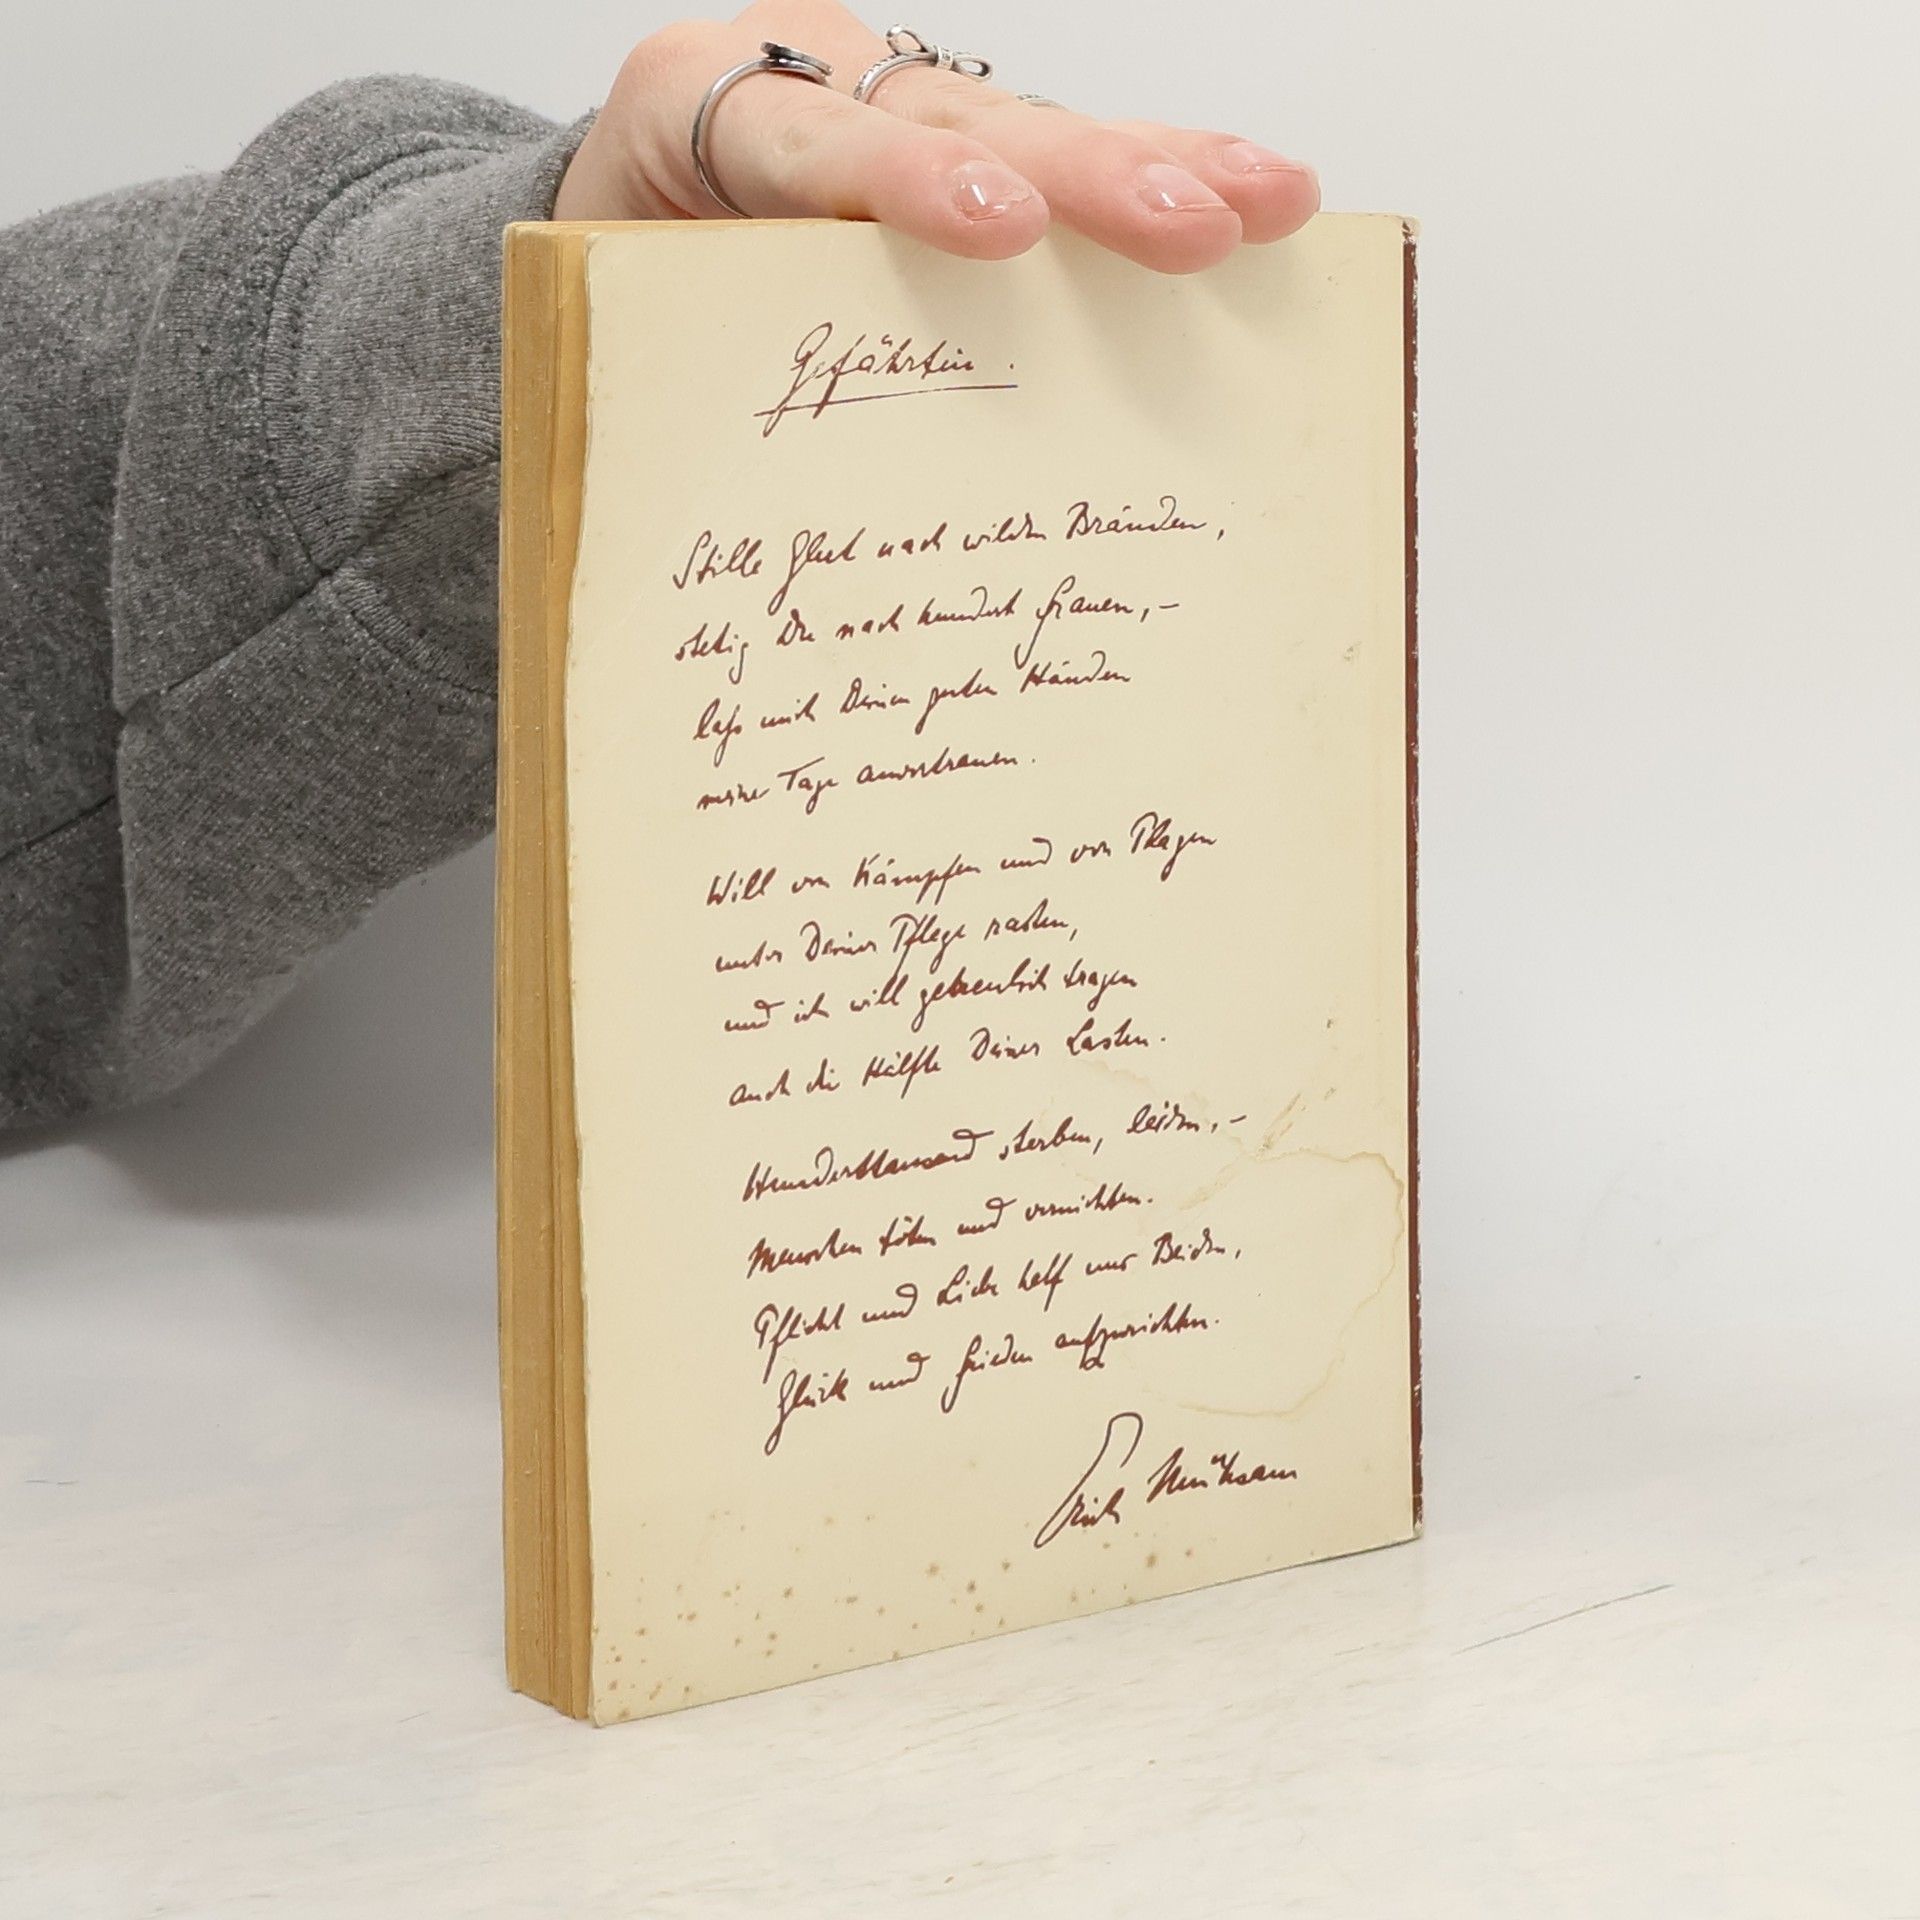 Gefährtin.
Stille Glut nach wilden Bränden,
stetig Du nach hundert Frauen,–
lass mich Deinen guten Händen
meine Tage anvertrauen.
Will von Kämpfen und von Plagen
unter Deiner Pflege rasten,
und ich will getreulich tragen
auch die Hälfte Deiner Lasten.
Hunderttausend sterben, leiden,–
Menschen töten und vernichten.
Pflicht und Liebe helf uns Beiden,
Glück und Frieden aufzurichten.
Erich Mühsam